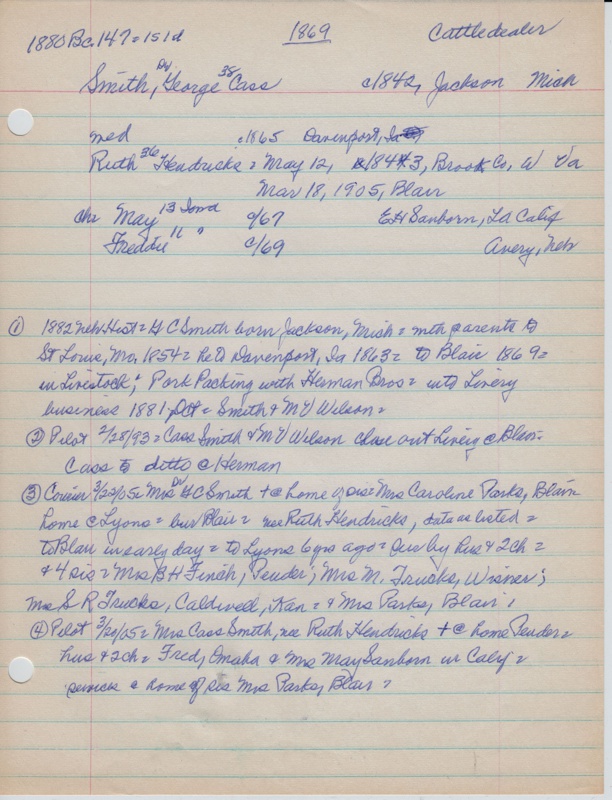 1880 Bc. 147 = 151 d 1869 Cattledealer
Smith, Dr George 38 Cass c1842, Jackson Mich
med c1865 Davenport, Ia
Ruth 36 Hendricks = May 12, 1843, Brook Co, W Va
Mar 18, 1905, Blair
chr May 13 Iowa c/67 E H Sanborn, La Calif
Freddie " " c/69 Avery, Neb
① 1882 Neb Hist = G C Smith born Jackson, Mich = with parents to
St Louis, Mo, 1854 = he to Davenport, Ia 1863 = to Blair 1869 =
in Livestock, & Pork Packing with Herman Bros = into Livery
business 1881 Oct = Smith & McV Wilson =
② Pilot 2/28/93 = Cass Smith & McV Wilson close out Livery @ Blair -
Cass to ditto @ Herman
③ Courier 3/23/05 = Mrs Dr G C Smith + @ home of sis = Mrs Caroline Parks, Blair =
home @ Lyons = bur Blair = nee Ruth Hendricks, data as listed =
to Blair in early day = to Lyons 6 yrs ago = Sur by hus & 2 ch =
& 4 sis = Mrs B H Finch, Pender; Mrs M. Trucks, Wisner;
Mrs S R Trucks, Caldwell, Kan = & Mrs Parks, Blair;
④ Pilot 3/20/05 = Mrs Cass Smith, nee Ruth Hendricks + @ home Pender =
hus & 2 ch = Fred, Omaha & Mrs May Sanborn in Calif =
services @ home of sis Mrs Parks, Blair =